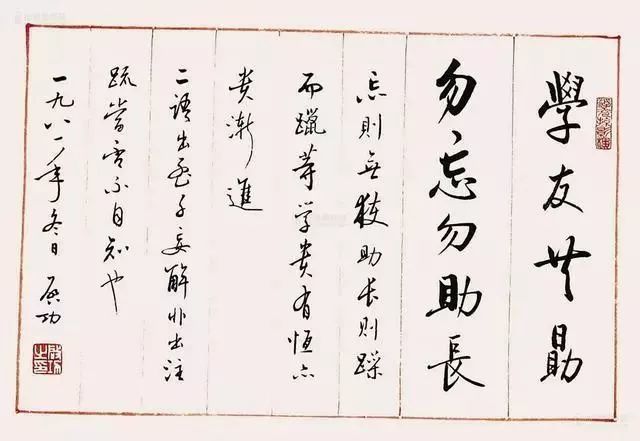 學友共勗
勿忘勿助長
忘則無獲助長則躁
而躐等学貴有恒亦
貴漸進
二語出孟子妄解非出注
疏當否不自知也
一九八一年冬日 启功